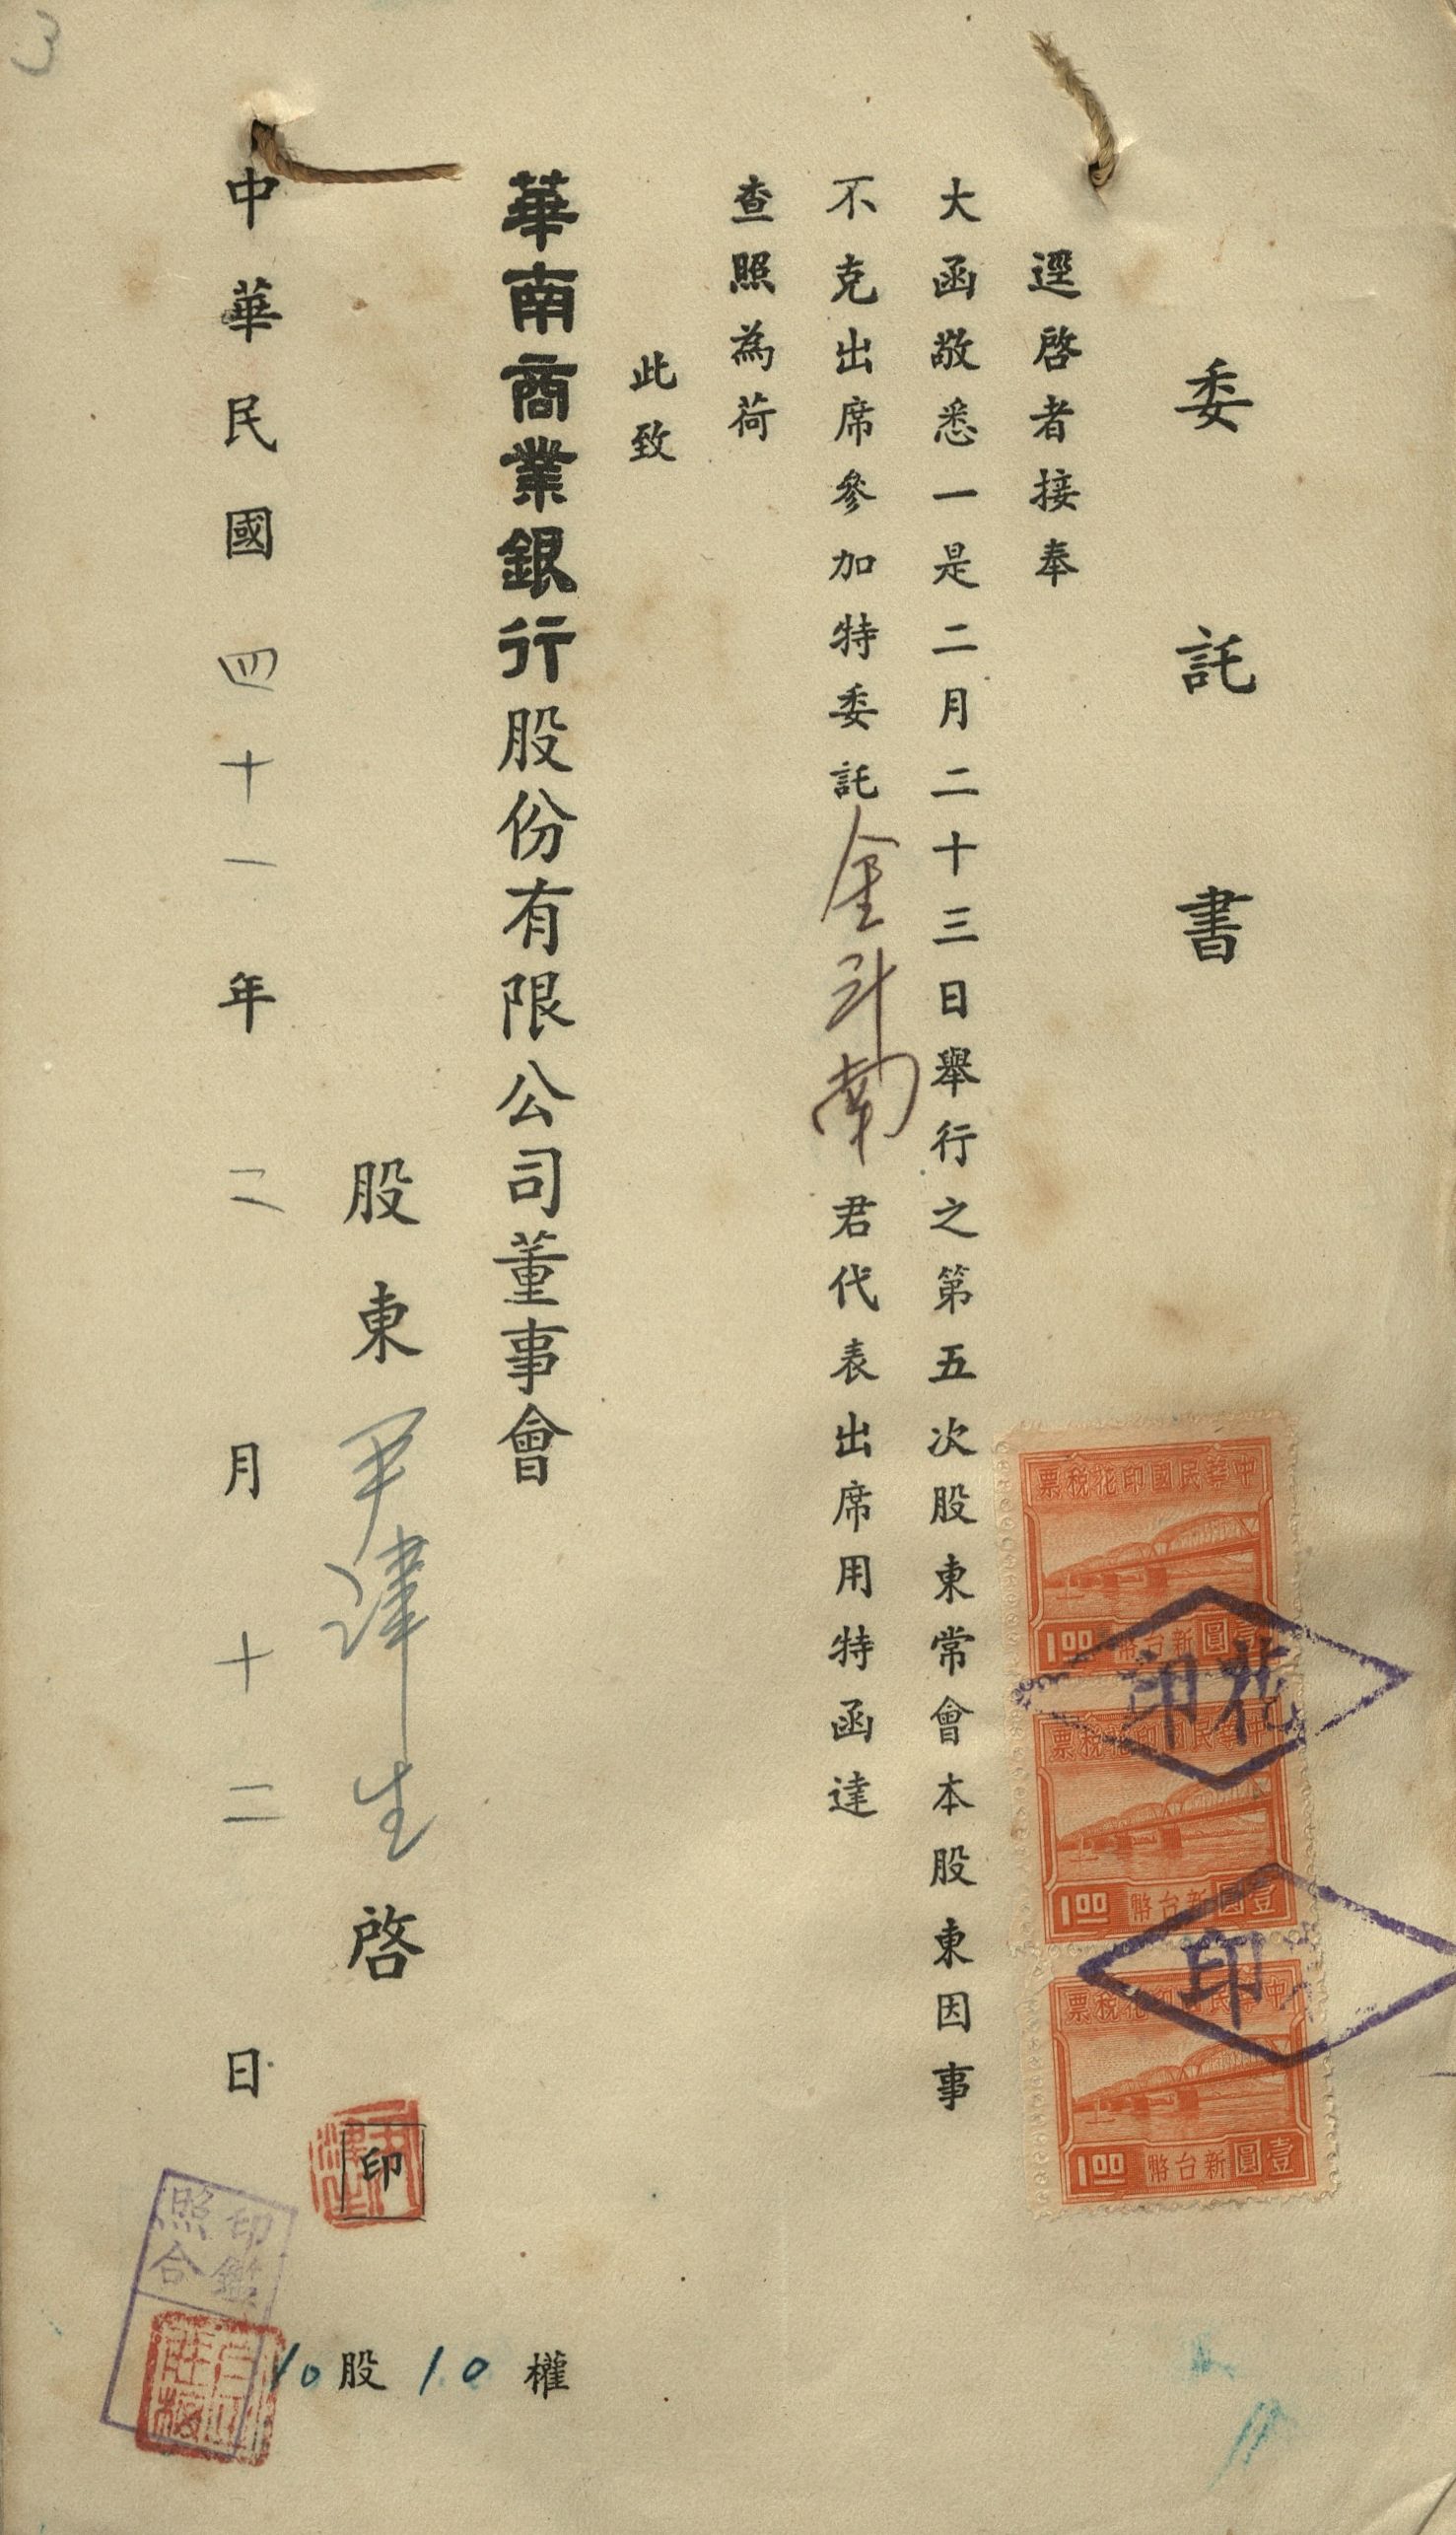 3
委託書
逕啓者接奉
大函敬悉一是二月二十三日舉行之第五次股東常會本股東因事
不克出席參加特委託金斗南君代表出席用特函達
查照為荷
此致
華南商業銀行股份有限公司董事會
股東尹津生啓
印
中華民國四十一年二月十二日
10股10權
印鑑
照合
中華民國印花稅票
新台幣壹圓
1.00
中華民國印花稅票
新台幣壹圓
1.00
中華民國印花稅票
新台幣壹圓
1.00
印花
印